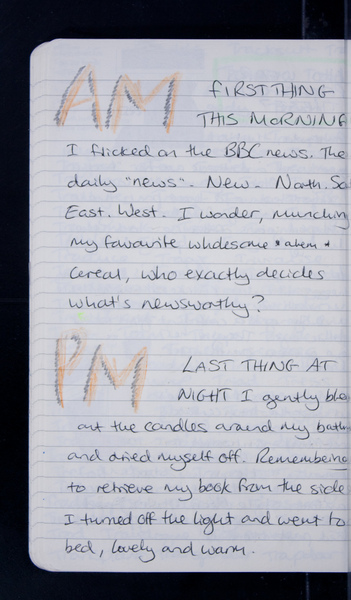 AM FIRST THING
THIS MORNING
I flicked on the BBC news. The
daily "news". New - North. So
East. West. I wonder, munching
my favourite wholesome *ahem*
cereal, who exactly decides
what's newsworthy?
PM LAST THING AT
NIGHT I gently blo
out the candles around my bath
and dried myself off. Remembering
to retrieve my book from the side
I turned off the light and went to
bed, lovely and warm.